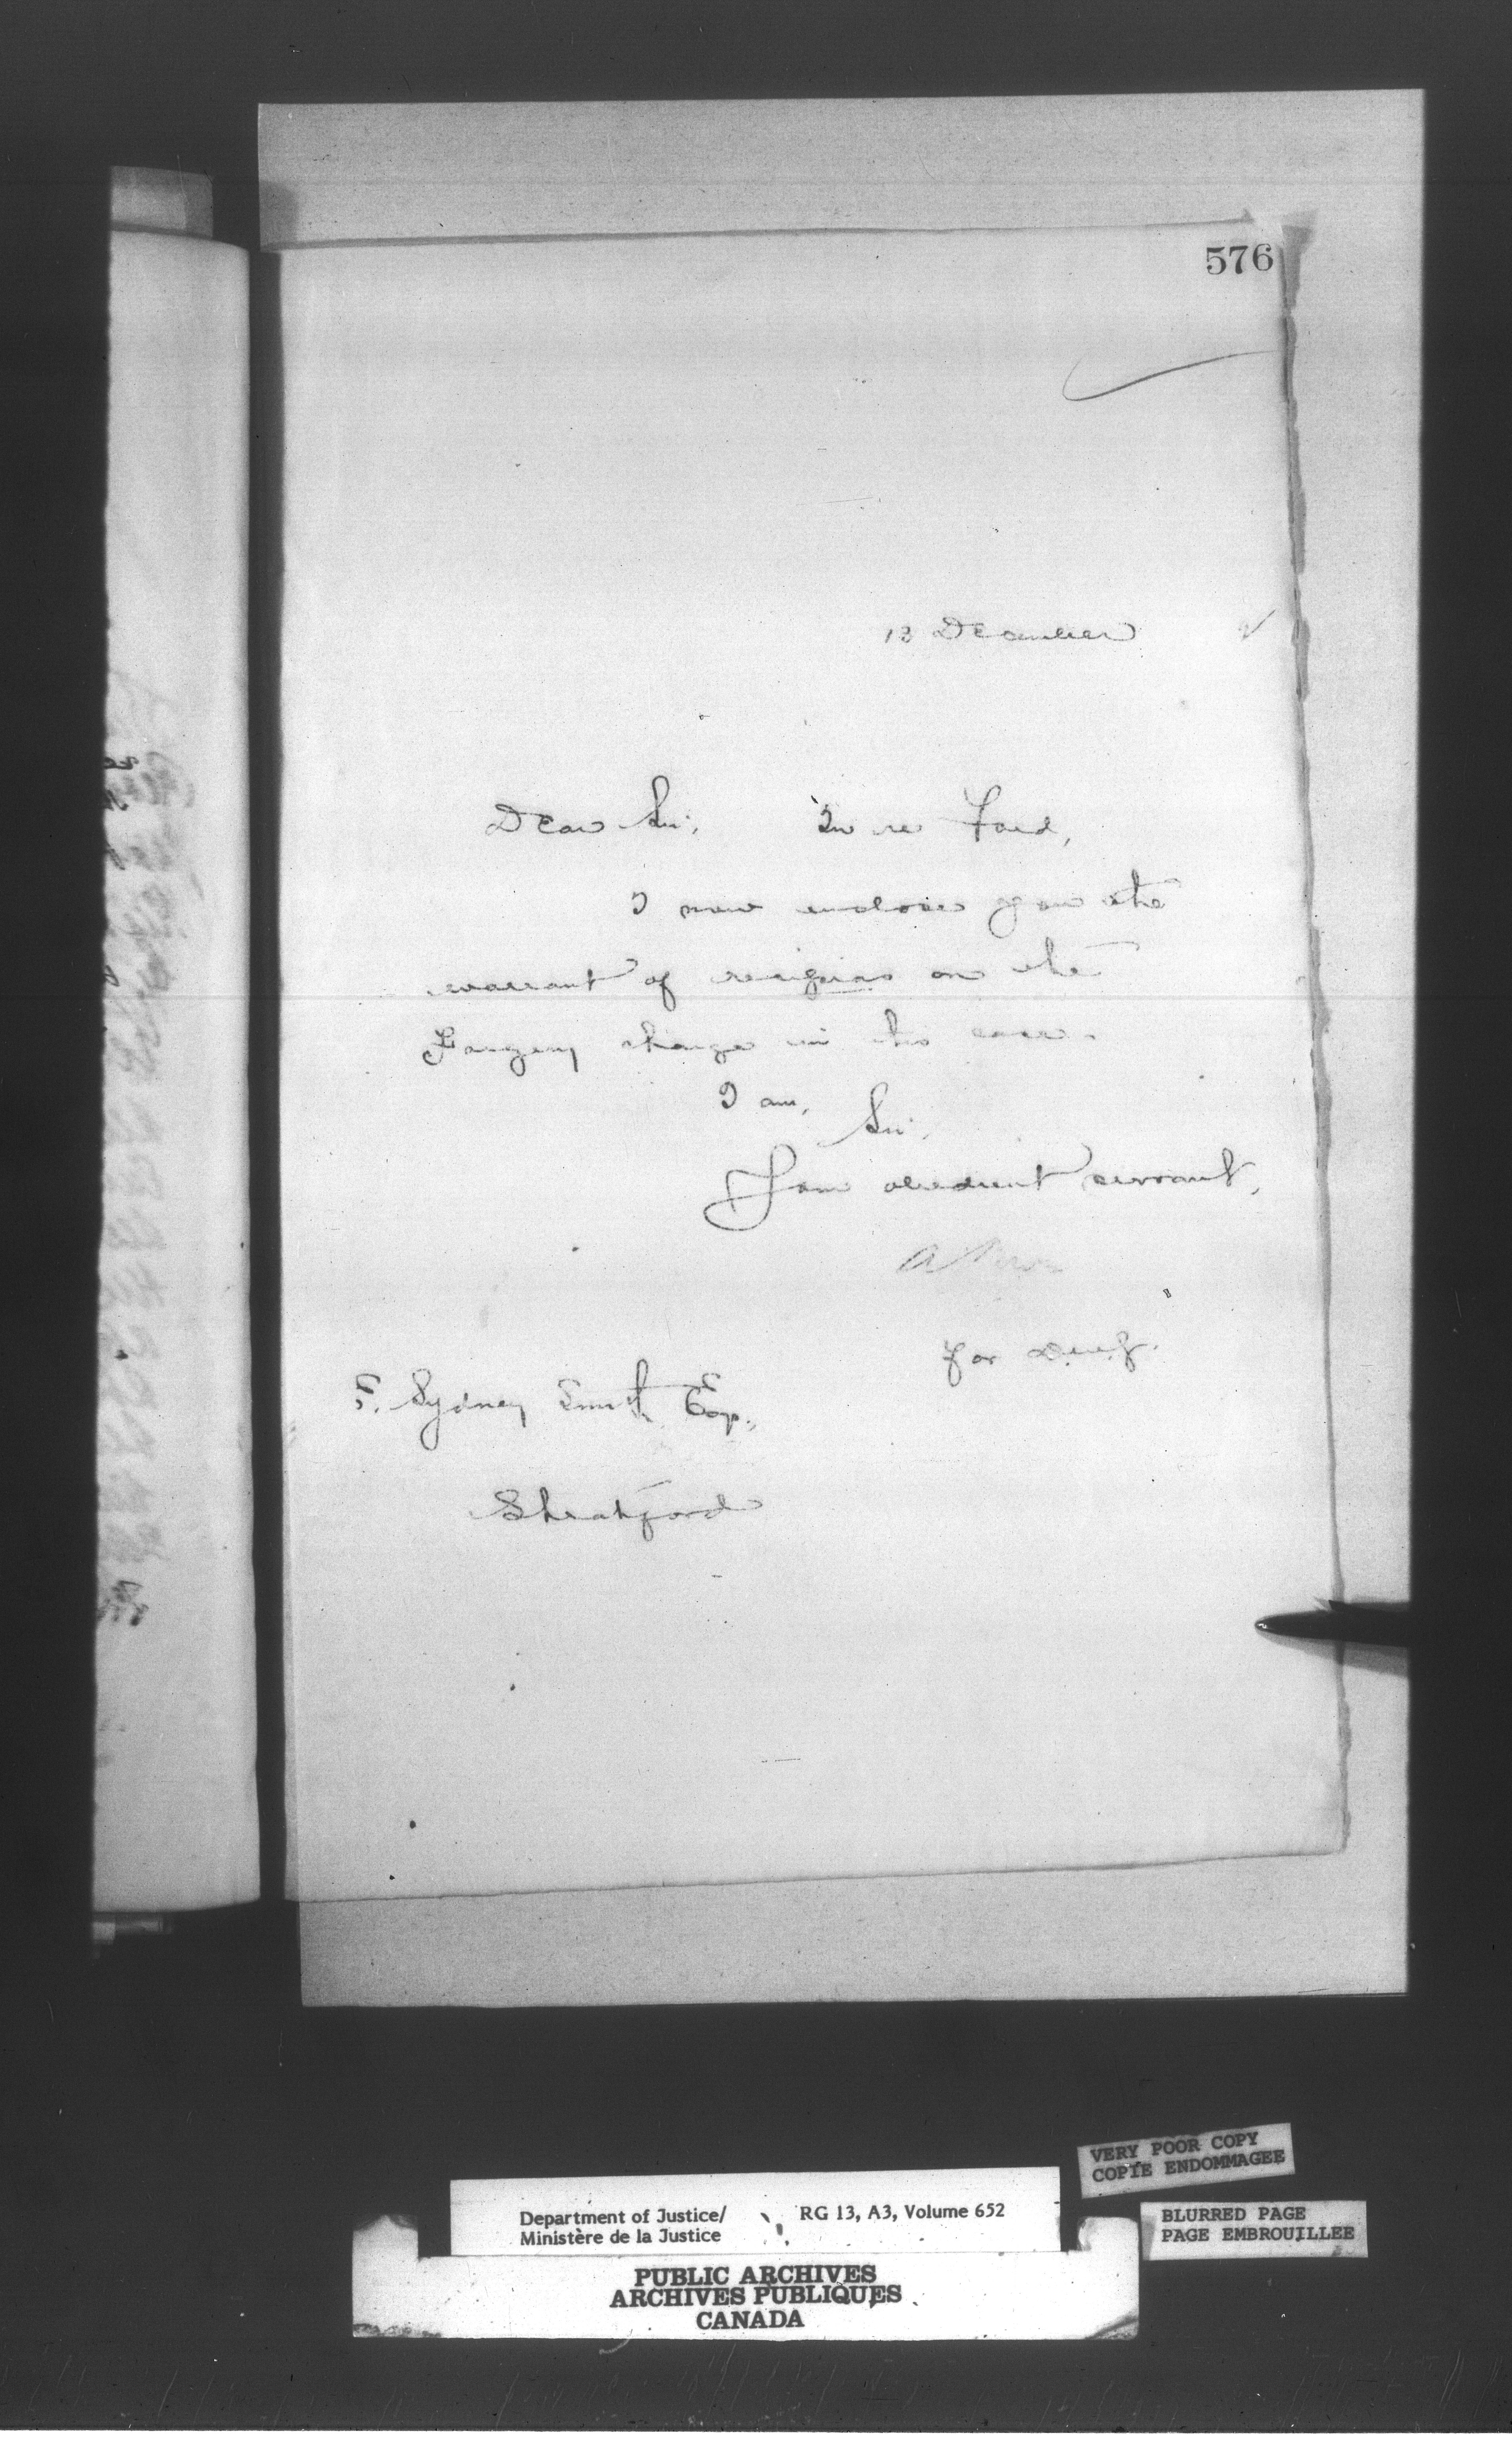 576
13 December
Dear Sir, In re Ford,
I now enclose you the
warrant of on the
Forgery charge in this case.
I am,
Sir,
Your obedient servant,
for D.M.J.
F. Sydney Smith Esq.,
Stratford
VERY POOR COPY
COPIE ENDOMMAGEE
Department of Justice/
Ministère de la Justice
RG 13, A3, Volume 652
BLURRED PAGE
PAGE EMBROUILLEE
PUBLIC ARCHIVES
ARCHIVES PUBLIQUES
CANADA